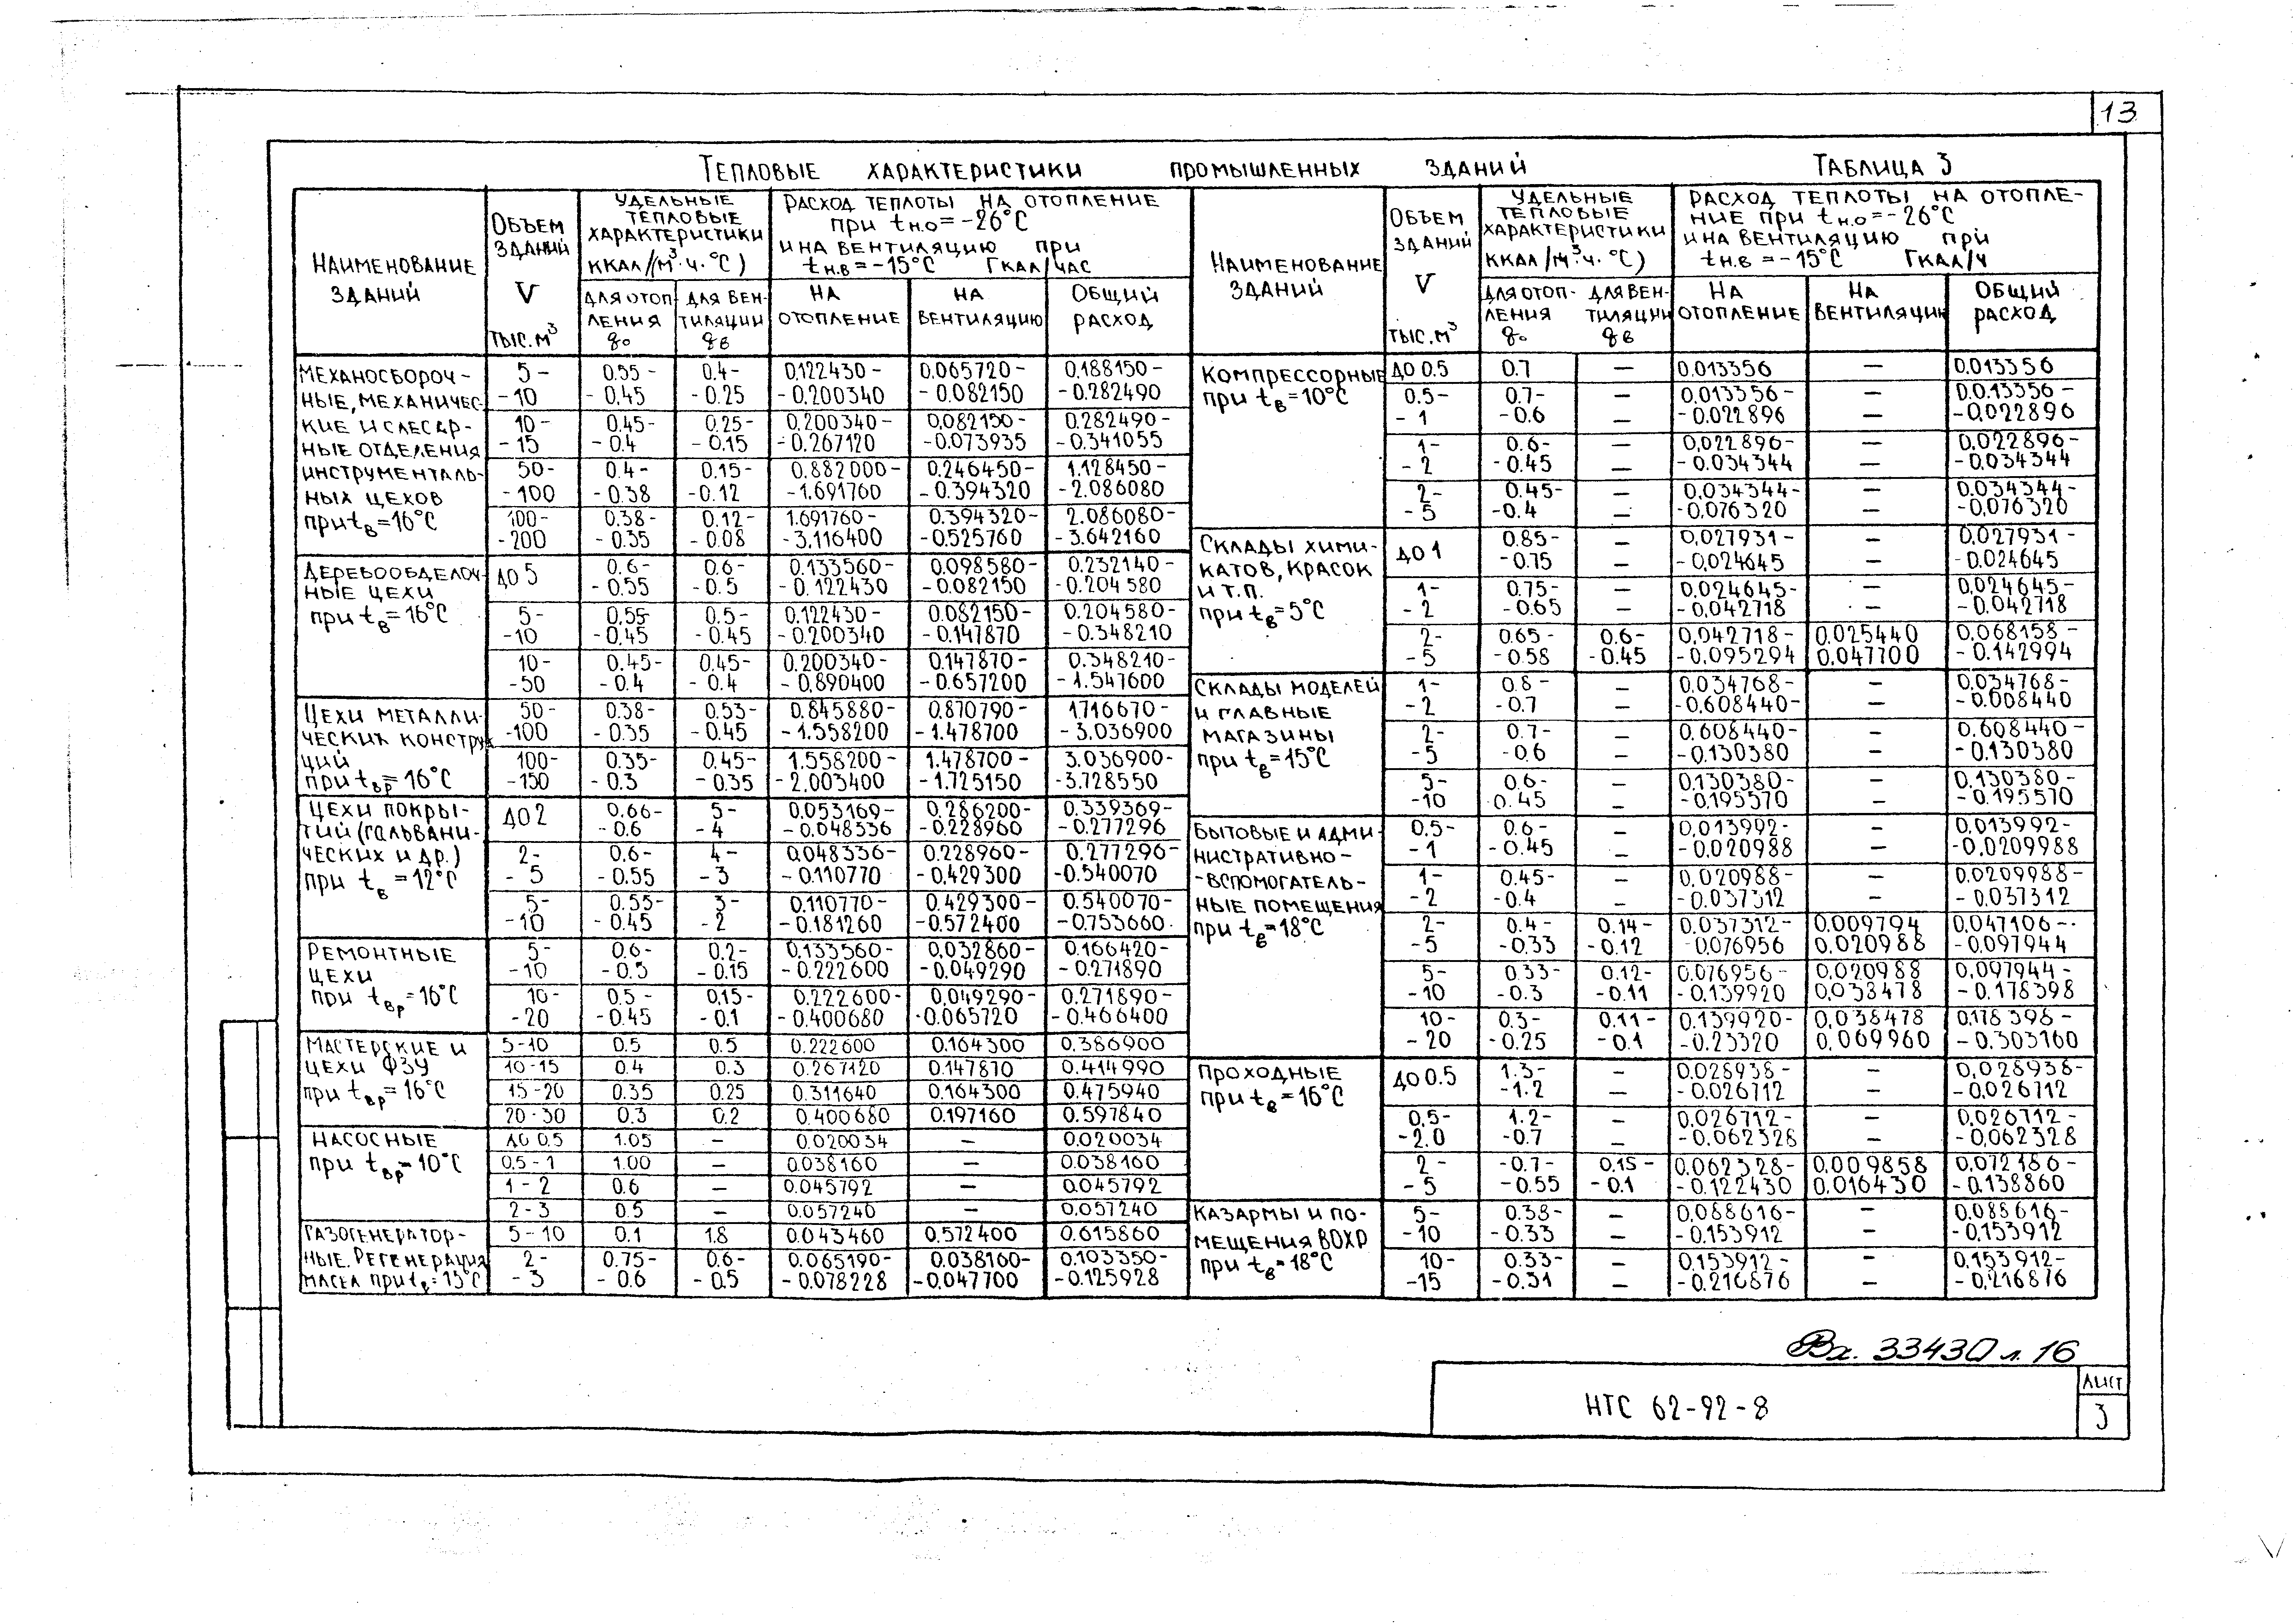 13
Тепловые характеристики промышленных зданий Таблица 3
Наименование зданий
Объем зданий V тыс.м³
Удельные тепловые характеристики ккал/(м³·ч·°С)
Расход теплоты на отопление при tн.о = -26°С и на вентиляцию при tн.в = -15°С Гкал/час
для отопления qо
для вентиляции qв
на отопление
на вентиляцию
общий расход
Механосбороч-
ные, механичес-
кие и слесар-
ные отделения
инструменталь-
ных цехов
при tв = 16°С
5- 0.55- 0.4- 0.122430- 0.065720- 0.188150-
-10 -0.45 -0.25 -0.200340 -0.082150 -0.282490
10- 0.45- 0.25- 0.200340- 0.082150- 0.282490-
-15 -0.4 -0.15 -0.267120 -0.073935 -0.341055
50- 0.4- 0.15- 0.882000- 0.246450- 1.128450-
-100 -0.38 -0.12 -1.691760 -0.394320 -2.086080
100- 0.38- 0.12- 1.691760- 0.394320- 2.086080-
-200 -0.35 -0.08 -3.116400 -0.525760 -3.642160
Деревообделоч-
ные цехи
при tв = 16°С
до 5 0.6- 0.6- 0.133560- 0.098580- 0.232140-
-0.55 -0.5 -0.122430 -0.082150 -0.204580
5- 0.55- 0.5- 0.122430- 0.082150- 0.204580-
-10 -0.45 -0.45 -0.200340 -0.147870 -0.348210
10- 0.45- 0.45- 0.200340- 0.147870- 0.348210-
-50 -0.4 -0.4 -0.890400 -0.657200 -1.547600
Цехи металли-
ческих конструк
ций
при tвр = 16°С
50- 0.38- 0.53- 0.845880- 0.870790- 1.716670-
-100 -0.35 -0.45 -1.558200 -1.478700 -3.036900
100- 0.35- 0.45- 1.558200- 1.478700- 3.036900-
-150 -0.3 -0.35 -2.003400 -1.725150 -3.728550
Цехи покры-
тий (гальвани-
ческих и др.)
при tв = 12°С
до 2 0.66- 5- 0.053169- 0.286200- 0.339369-
-0.6 -4 -0.048336 -0.228960 -0.277296
2- 0.6- 4- 0.048336- 0.228960- 0.277296-
-5 -0.55 -3 -0.110770 -0.429300 -0.540070
5- 0.55- 3- 0.110770- 0.429300- 0.540070-
-10 -0.45 -2 -0.181260 -0.572400 -0.753660
Ремонтные
цехи
при tвр = 16°С
5- 0.6- 0.2- 0.133560- 0.032860- 0.166420-
-10 -0.5 -0.15 -0.222600 -0.049290 -0.271890
10- 0.5- 0.15- 0.222600- 0.049290- 0.271890-
-20 -0.45 -0.1 -0.400680 -0.065720 -0.466400
Мастерские и
цехи ФЗУ
при tвр = 16°С
5-10 0.5 0.5 0.222600 0.164300 0.386900
10-15 0.4 0.3 0.267120 0.147870 0.414990
15-20 0.35 0.25 0.311640 0.164300 0.475940
20-30 0.3 0.2 0.400680 0.197160 0.597840
Насосные
при tвр = 10°С
до 0.5 1.05 — 0.020034 — 0.020034
0.5-1 1.00 — 0.038160 — 0.038160
1-2 0.6 — 0.045792 — 0.045792
2-3 0.5 — 0.057240 — 0.057240
Газогенератор-
ные. Регенерация
масла при tв = 15°С
5-10 0.1 1.8 0.043460 0.572400 0.615860
2- 0.75- 0.6- 0.065190- 0.038160- 0.103350-
-3 -0.6 -0.5 -0.078228 -0.047700 -0.125928
Наименование зданий
Объем зданий V тыс.м³
Удельные тепловые характеристики ккал/м³·ч·°С)
Расход теплоты на отопле-
ние при tн.о = -26°С
и на вентиляцию при
tн.в = -15°С Гкал/ч
для отоп-
ления qо
для вен-
тиляции qв
на отопление
на вентиляцию
общий расход
Компрессорные
при tв = 10°С
до 0.5 0.7 — 0.013356 — 0.013356
0.5- 0.7- — 0,013356- — 0.0.13356-
-1 -0.6 — -0.022896 — -0,022896
1- 0.6- — 0,022896- — 0,022896-
-2 -0.45 — -0.034344 — -0.034344
2- 0.45- — 0,034344- — 0.034344-
-5 -0.4 — -0,076320 — -0,076320
Склады хими-
катов, красок
и т.п.
при tв = 5°С
до 1 0.85- — 0,027931- — 0,027931-
-0.75 — -0,024645 — -0.024645
1- 0.75- — 0,024645- — 0,024645-
-2 -0.65 — -0,042718 — -0.042718
2- 0.65- 0.6- 0,042718- 0,025440 0,068158-
-5 -0.58 -0.45 -0,095294 0,047700 -0.142994
Склады моделей
и главные
магазины
при tв = 15°С
1- 0.8- — 0.034768- — 0.034768-
-2 -0.7 — -0.608440- — -0.008440
2- 0.7- — 0.608440- — 0.608440-
-5 -0.6 — -0.130380 — -0.130380
5- 0.6- — 0.130380- — 0.130380-
-10 -0.45 — -0,195570 — -0.195570
Бытовые и адми-
нистративно-
-вспомогатель-
ные помещения
при tв = 18°С
0.5- 0.6- — 0,013992- — 0,013992-
-1 -0.45 — -0.020988 — -0.0209988
1- 0.45- — 0.020988- — 0.0209988-
-2 -0.4 — -0.037312 — -0.037312
2- 0.4- 0.14- 0.037312- 0.009794 0.047106-
-5 -0.33 -0.12 -0,076956 0.020988 -0.097944
5- 0.33- 0.12- 0,076956- 0,020988 0,097944-
-10 -0.3 -0.11 -0.139920 0,038478 -0.178398
10- 0.3- 0.11- 0.139920- 0,038478 0.178398-
-20 -0.25 -0.1 -0.23320 0,069960 -0.303160
Проходные
при tв = 16°С
до 0.5 1.3- — 0.028938- — 0,028938-
-1.2 — -0.026712 — -0.026712
0.5- 1.2- — 0.026712- — 0.026712-
-2.0 -0.7 — -0.062328 — -0,062328
2- -0.7- 0.15- 0.062328- 0.009858 0.072186-
-5 -0.55 -0.1 -0.122430 0.016430 -0.138860
Казармы и по-
мещения ВОХР
при tв = 18°С
5- 0.38- — 0,088616- — 0.088616-
-10 -0.33 — -0.153912 — -0.153912
10- 0.33- — 0.153912- — 0.153912-
-15 -0.31 — -0.216876 — -0,216876
Вх. 33430 л. 16
НТС 62-92-8
Лист
3